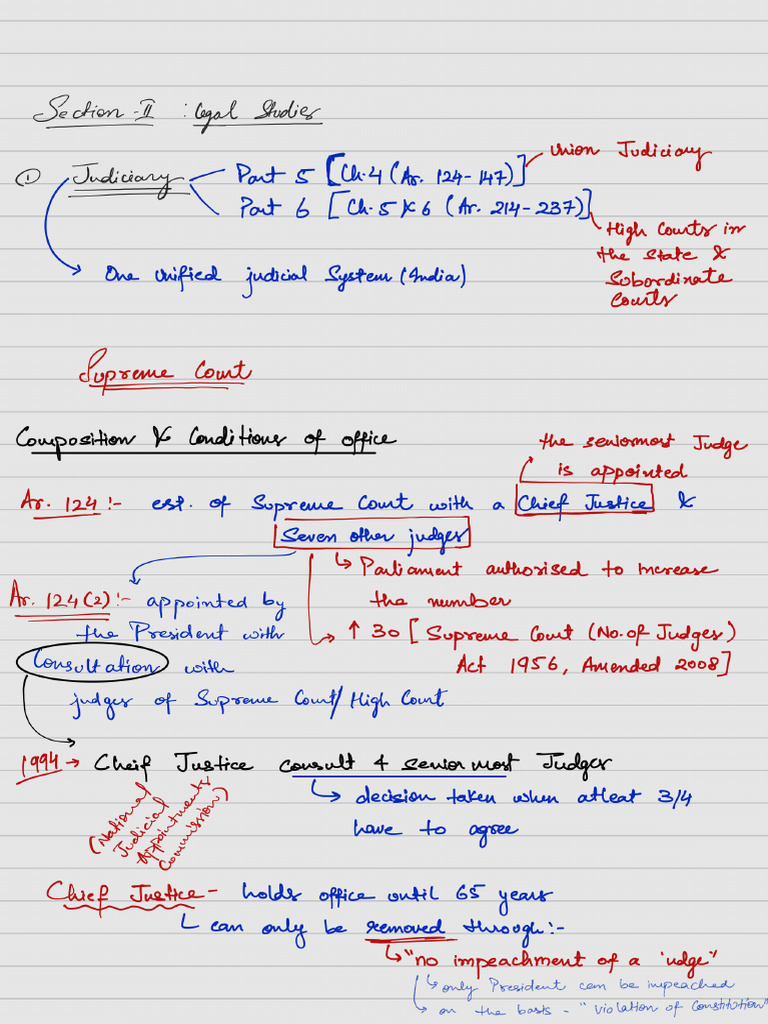 Section-II : Legal Studies
① Judiciary
Part 5 [Ch.4 (Ar. 124-147)]
Union Judiciary
Part 6 [Ch.5 & 6 (Ar. 214-237)]
High Courts in
the State &
Subordinate
Courts
One Unified judicial System (India)
Supreme Court
Composition & Conditions of office
the seniormost Judge
is appointed
Ar. 124 :- est. of Supreme Court with a Chief Justice &
Seven other judges
↳ Parliament authorised to increase
the number
→ ↑ 30 [Supreme Court (No. of Judges)
Act 1956, Amended 2008]
Ar. 124(2) :- appointed by
the President with
Consultation with
judges of Supreme Court/High Court
1994 → Cheif Justice consult 4 seniormost Judges
↳ decision taken when atleat 3/4
have to agree
(National
Judicial
Appointments
Commission)
Chief Justice - holds office until 65 years
can only be removed through :-
↳ "no impeachment of a udge"
↳ only President can be impeached
↳ on the basis - "violation of Constitution"